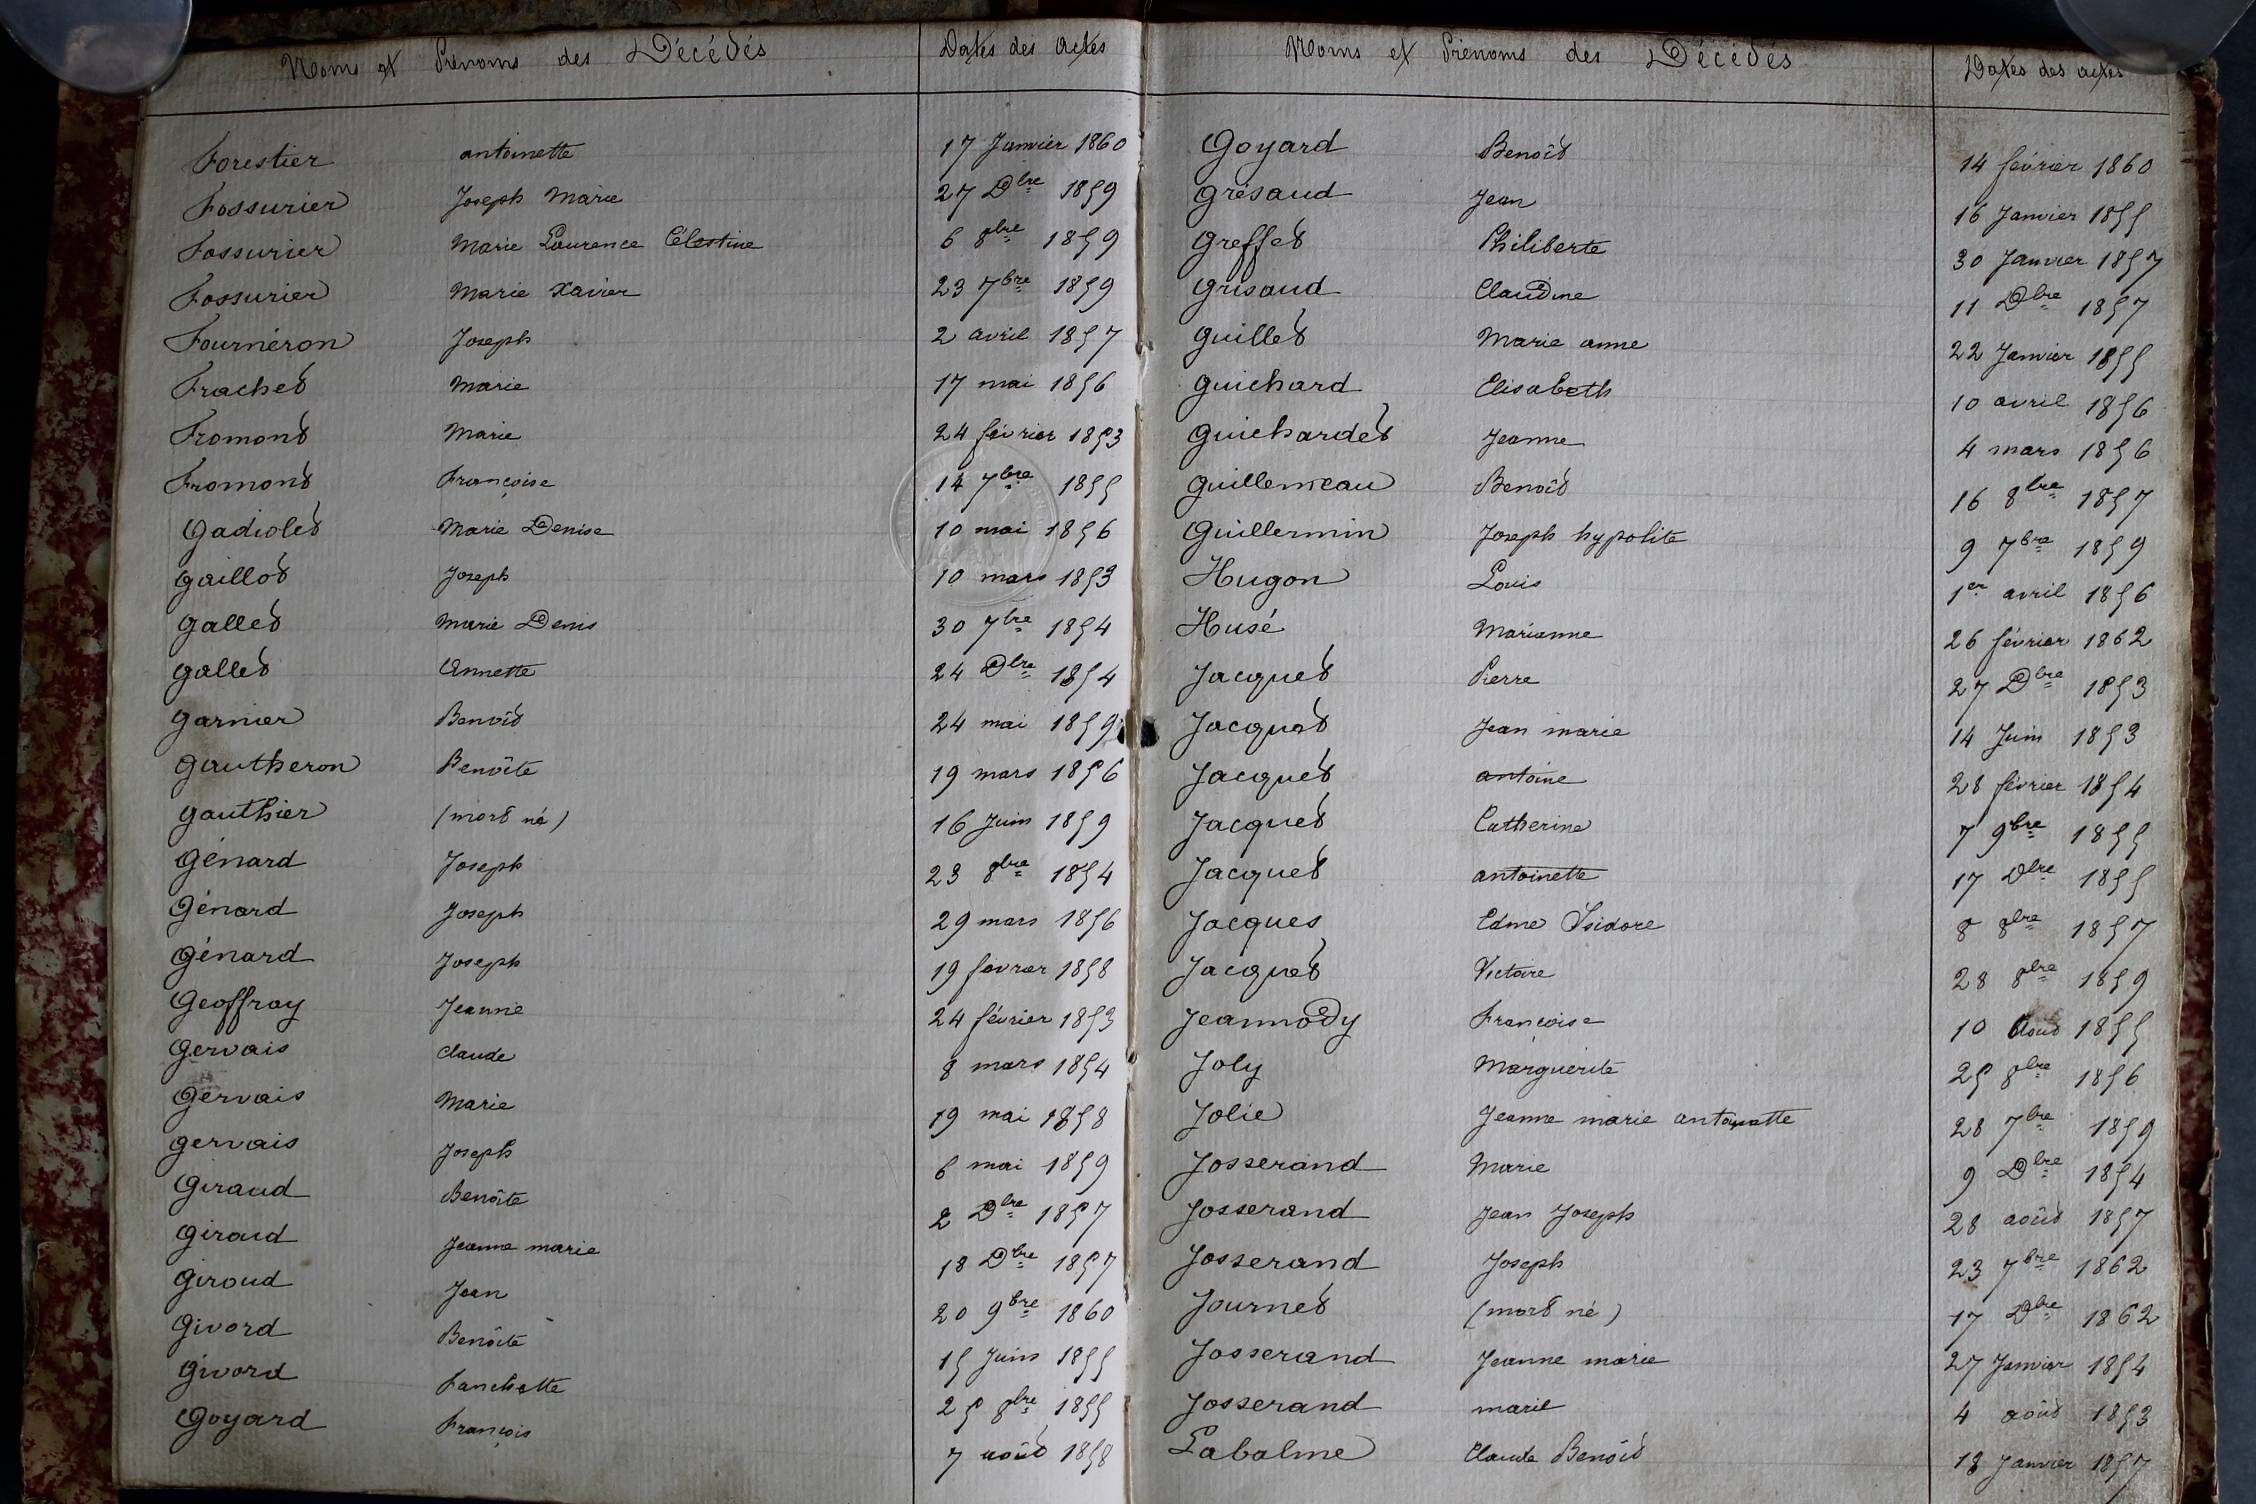 Noms et Prénoms des Décédés Dates des actes
Forestier antoinette 17 Janvier 1860
Fossurier Joseph Marie 27 Dbre 1859
Fossurier Marie Laurence Célestine 6 8bre 1859
Fossurier Marie Xavier 23 7bre 1859
Fournéron Joseph 2 avril 1857
Frachet Marie 17 mai 1856
Fromont Marie 24 février 1853
Fromont Françoise 14 7bre 1855
Gadiolet Marie Denise 10 mai 1856
Gaillot Joseph 10 mars 1853
Gallet Marie Denis 30 7bre 1854
Gallet Annette 24 Dbre 1854
Garnier Benoît 24 mai 1859
Gautheron Benoîte 19 mars 1856
Gauthier (mort né) 16 Juin 1859
Génard Joseph 23 8bre 1854
Génard Joseph 29 mars 1856
Génard Joseph 19 février 1858
Geoffray Jeanne 24 février 1853
Gervais Claude 8 mars 1854
Gervais Marie 19 mai 1858
Gervais Joseph 6 mai 1859
Giraud Benoîte 2 Dbre 1857
Giraud Jeanne marie 18 Dbre 1857
Giroud Jean 20 9bre 1860
Givord Benoîte 15 Juin 1855
Givord Fanchette 25 8bre 1855
Goyard François 7 août 1858
Noms et Prénoms des Décédés Dates des actes
Goyard Benoît 14 février 1860
Grésaud Jean 16 Janvier 1855
Greffet Philiberte 30 Janvier 1857
Grisaud Claudine 11 Dbre 1857
Guillet Marie anne 22 Janvier 1855
Guichard Elisabeth 10 avril 1856
Guichardet Jeanne 4 mars 1856
Guillemeau Benoît 16 8bre 1857
Guillermin Joseph hypolite 9 7bre 1859
Hugon Louis 1er avril 1856
Husé Marianne 26 février 1862
Jacquet Pierre 27 Dbre 1853
Jacquet Jean marie 14 Juin 1853
Jacquet antoine 28 février 1854
Jacquet Catherine 7 9bre 1855
Jacquet antoinette 17 Dbre 1855
Jacques Edme Isidore 8 8bre 1857
Jacquet Victoire 28 8bre 1859
Jeannody Françoise 10 Aout 1855
Joly Marguerite 25 8bre 1856
Jolie Jeanne marie antoinette 28 7bre 1859
Josserand Marie 9 Dbre 1854
Josserand Jean Joseph 28 août 1857
Josserand Joseph 23 7bre 1862
Journet (mort né) 17 Dbre 1862
Josserand Jeanne marie 27 Janvier 1854
Josserand marie 4 août 1853
Labalme Claude Benoît 13 Janvier 1857